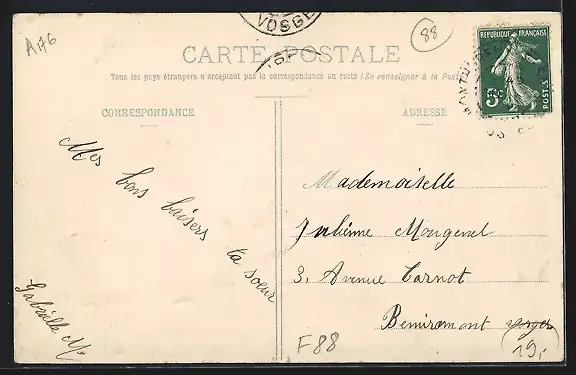 A46
VOSGES
88
CARTE POSTALE
Tous les pays étrangers n'acceptent pas la correspondance au recto (Se renseigner à la Poste)
REPUBLIQUE FRANÇAISE
5c
POSTES
CORRESPONDANCE
ADRESSE
Mes bons baisers ta soeur
Gabrielle M.
Mademoiselle
Julienne Mougenel
3, Avenue Carnot
Remiremont Vosges
F88
19,-